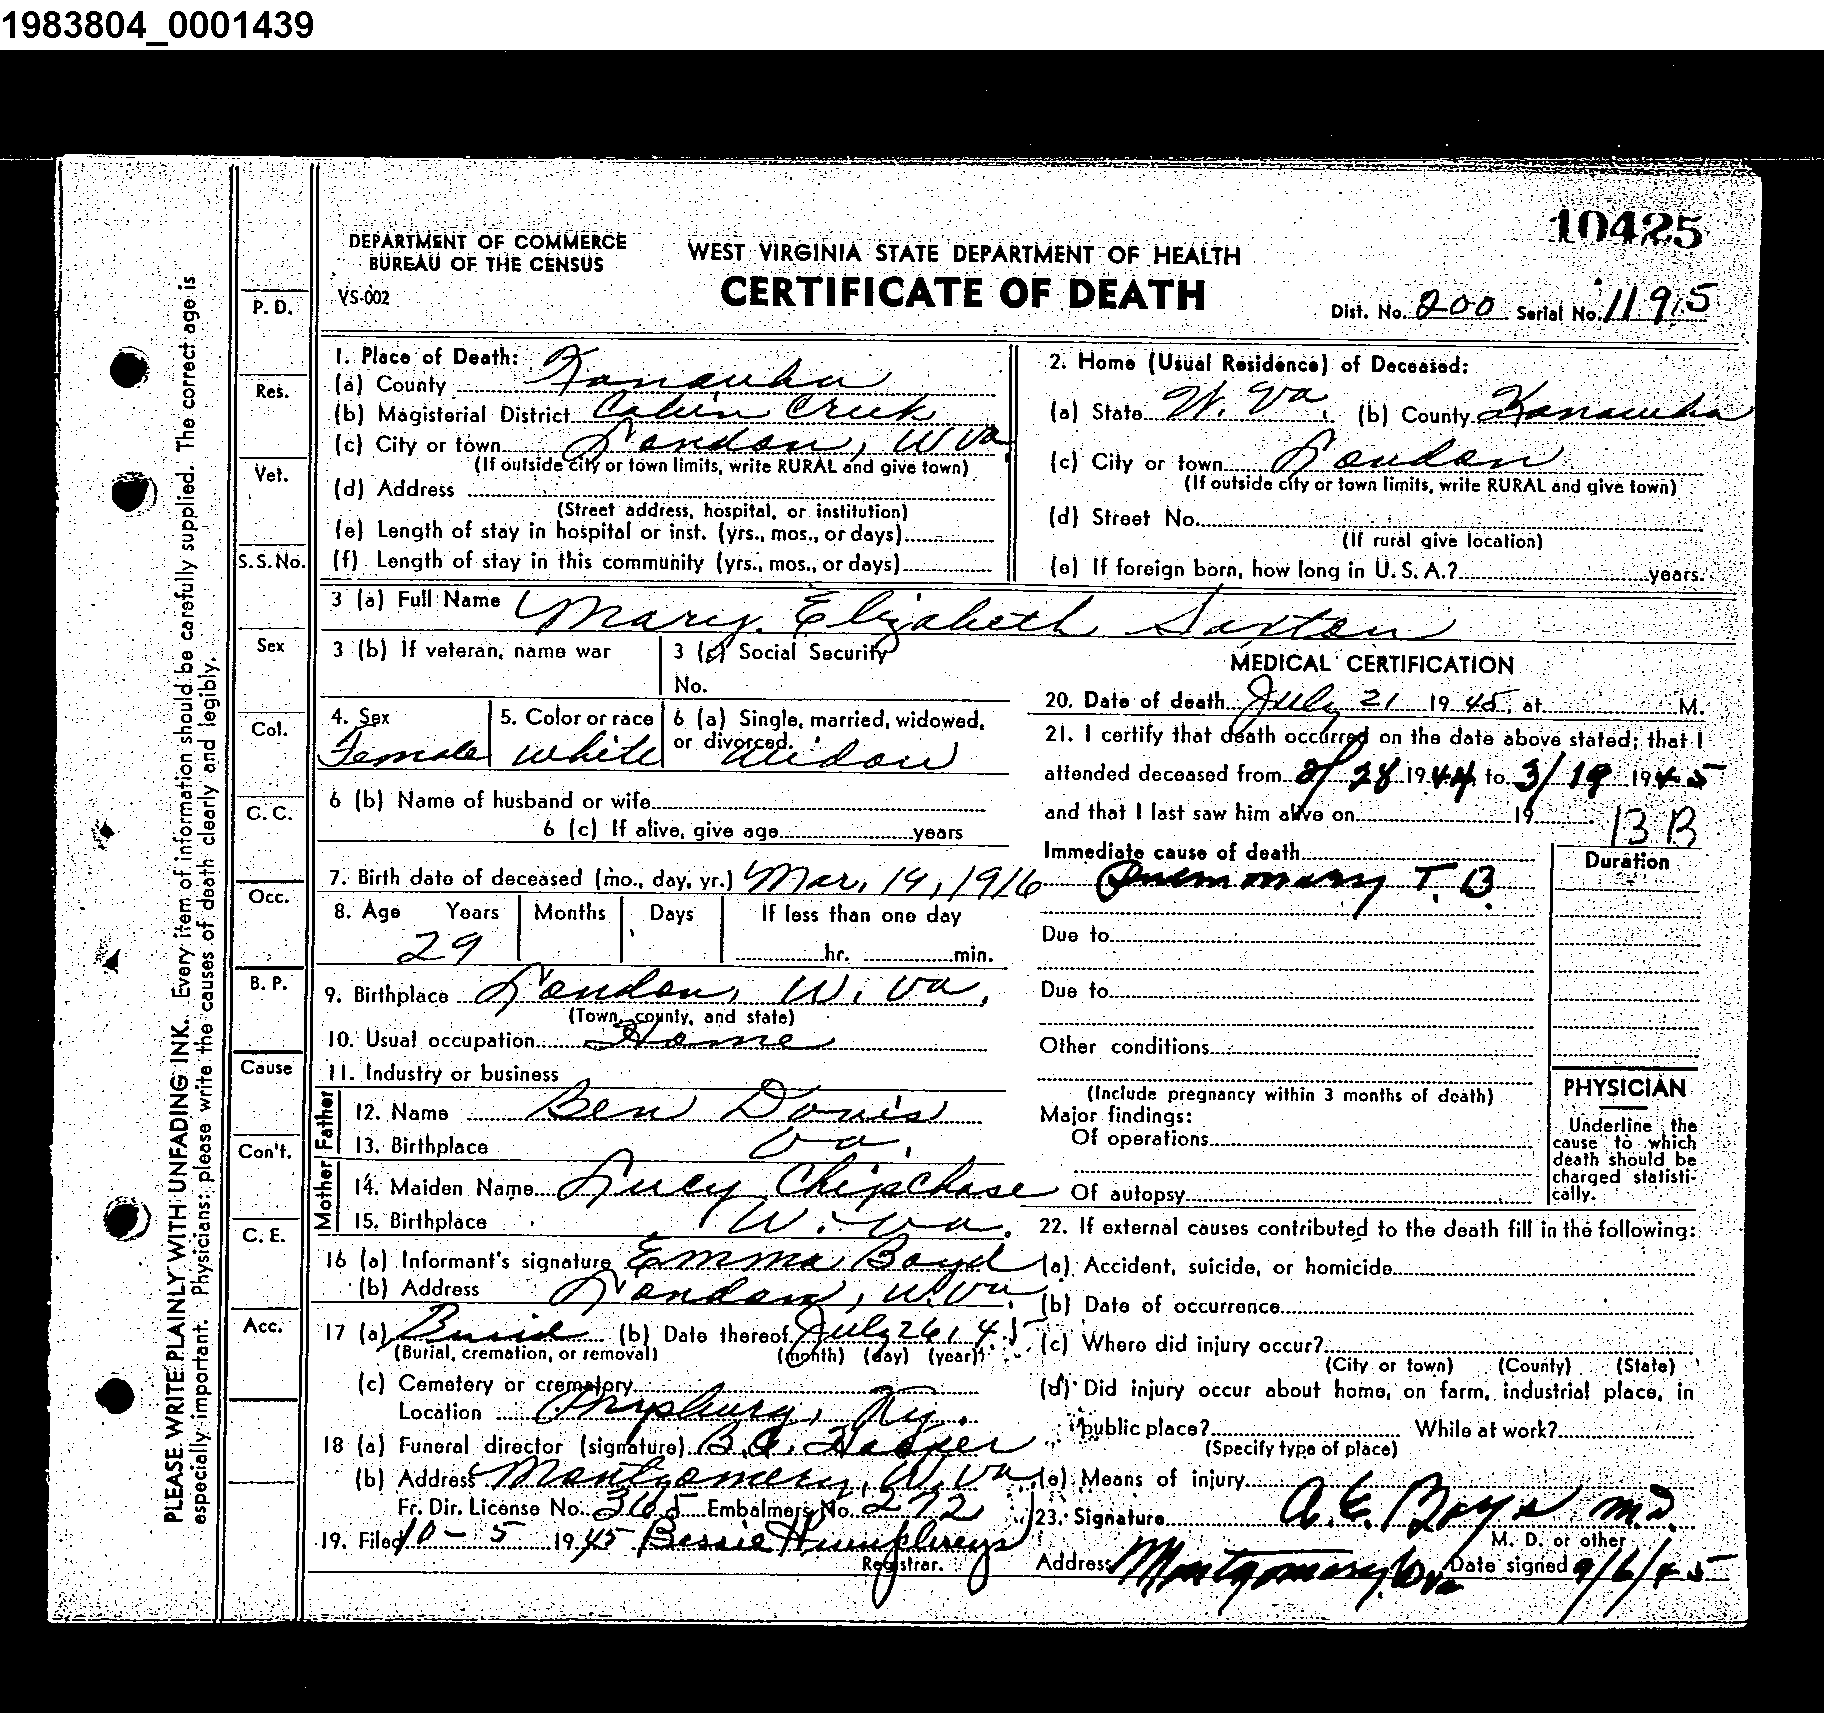 1983804_0001439
10425
DEPARTMENT OF COMMERCE
BUREAU OF THE CENSUS
VS-002
WEST VIRGINIA STATE DEPARTMENT OF HEALTH
CERTIFICATE OF DEATH
Dist. No. 200 Serial No. 1195
1. Place of Death:
(a) County Kanawha
(b) Magisterial District Cabin Creek
(c) City or town London, W Va
(If outside city or town limits, write RURAL and give town)
(d) Address
(Street address, hospital, or institution)
(e) Length of stay in hospital or inst. (yrs., mos., or days)
(f) Length of stay in this community (yrs., mos., or days)
2. Home (Usual Residence) of Deceased:
(a) State W. Va. (b) County Kanawha
(c) City or town London
(If outside city or town limits, write RURAL and give town)
(d) Street No.
(If rural give location)
(e) If foreign born, how long in U.S.A.? years.
3 (a) Full Name Mary Elizabeth Saxton
3 (b) If veteran, name war
3 (c) Social Security
No.
4. Sex
Female
5. Color or race
White
6 (a) Single, married, widowed,
or divorced.
Widow
6 (b) Name of husband or wife
6 (c) If alive, give age years
7. Birth date of deceased (mo., day, yr.) Mar, 14, 1916
8. Age Years Months Days If less than one day
29 hr. min.
9. Birthplace London, W. Va.
(Town, county, and state)
10. Usual occupation Home
11. Industry or business
Father
12. Name Ben Davis
13. Birthplace Va.
Mother
14. Maiden Name Lucy Chipchase
15. Birthplace W. Va.
16 (a) Informant's signature Emma Boyd
(b) Address London, W. Va.
17 (a) Burial (b) Date thereof July 26, 45
(Burial, cremation, or removal) (month) (day) (year)
(c) Cemetery or crematory
Location Ky.
18 (a) Funeral director (signature) B.
(b) Address Montgomery, W. Va
Fr. Dir. License No. 365 Embalmers No. 272
19. Filed 10-5 1945 Bessie Humphreys
Registrar.
MEDICAL CERTIFICATION
20. Date of death July 21 1945, at M.
21. I certify that death occurred on the date above stated; that I
attended deceased from 28 1944 to 3/19 1945
and that I last saw him alive on 19
13 B
Immediate cause of death
Pulmonary T. B.
Duration
Due to
Due to
Other conditions
(Include pregnancy within 3 months of death)
Major findings:
Of operations
Of autopsy
PHYSICIAN
Underline the
cause to which
death should be
charged statisti-
cally.
22. If external causes contributed to the death fill in the following:
(a) Accident, suicide, or homicide
(b) Date of occurrence
(c) Where did injury occur?
(City or town) (County) (State)
(d) Did injury occur about home, on farm, industrial place, in
public place? While at work?
(Specify type of place)
(e) Means of injury
23. Signature A. E. Bays M.D.
M. D. or other
Address Montgomery, W Va Date signed 9/6/45
P. D.
Res.
Vet.
S. S. No.
Sex
Col.
C. C.
Occ.
B. P.
Cause
Con't.
C. E.
Acc.
PLEASE WRITE PLAINLY WITH UNFADING INK. Every item of information should be carefully supplied. The correct age is
especially important. Physicians: please write the causes of death clearly and legibly.